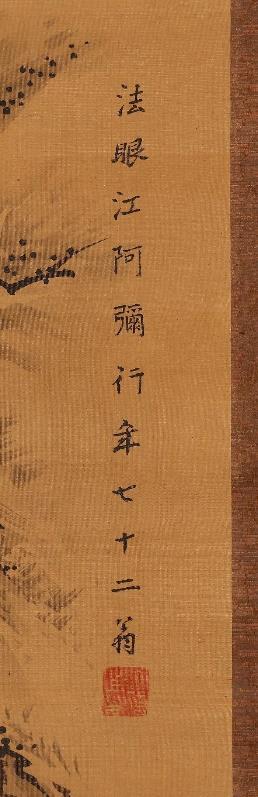 法眼江阿彌行年七十二翁